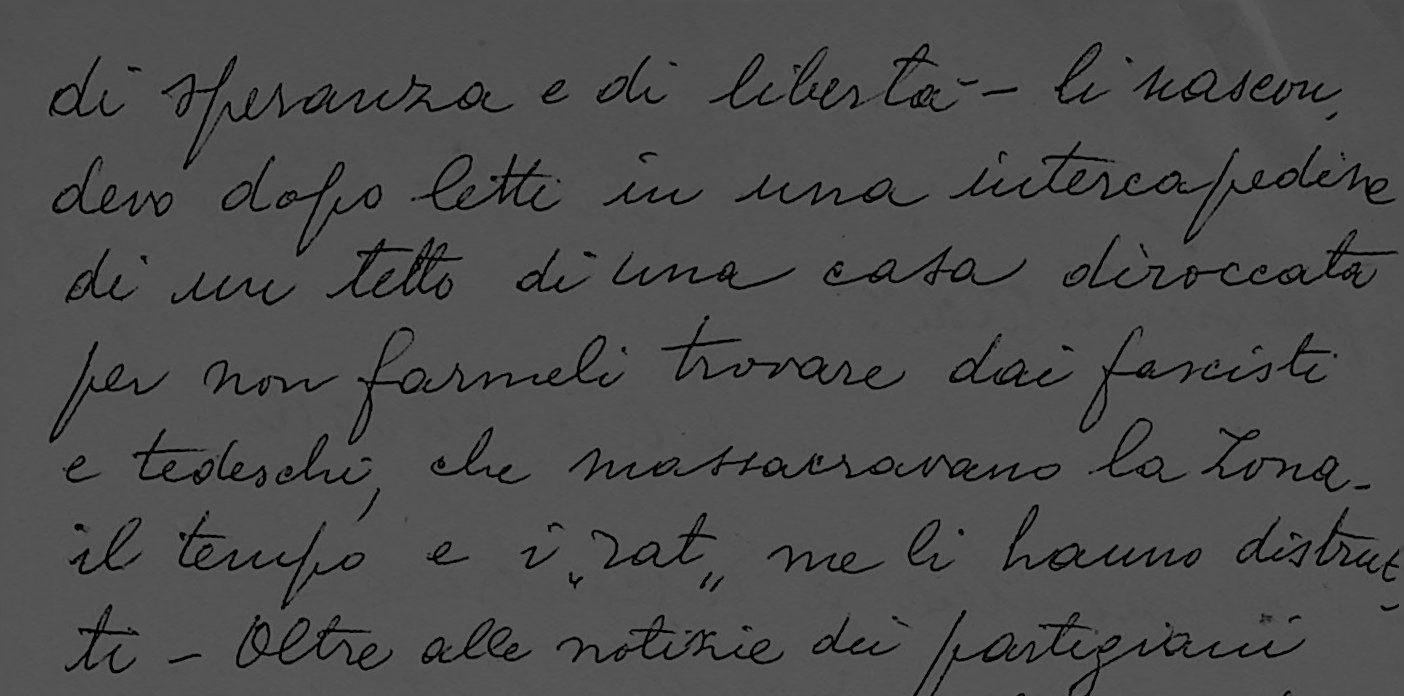 di speranza e di libertà - li nascon,
devo dopo letti in una intercapedine
di un tetto di una casa diroccata
per non farmeli trovare dai fascisti
e tedeschi, che massacravano la zona -
il tempo e i „rat„ me li hanno distrut-
ti - Oltre alle notizie dei partigiani